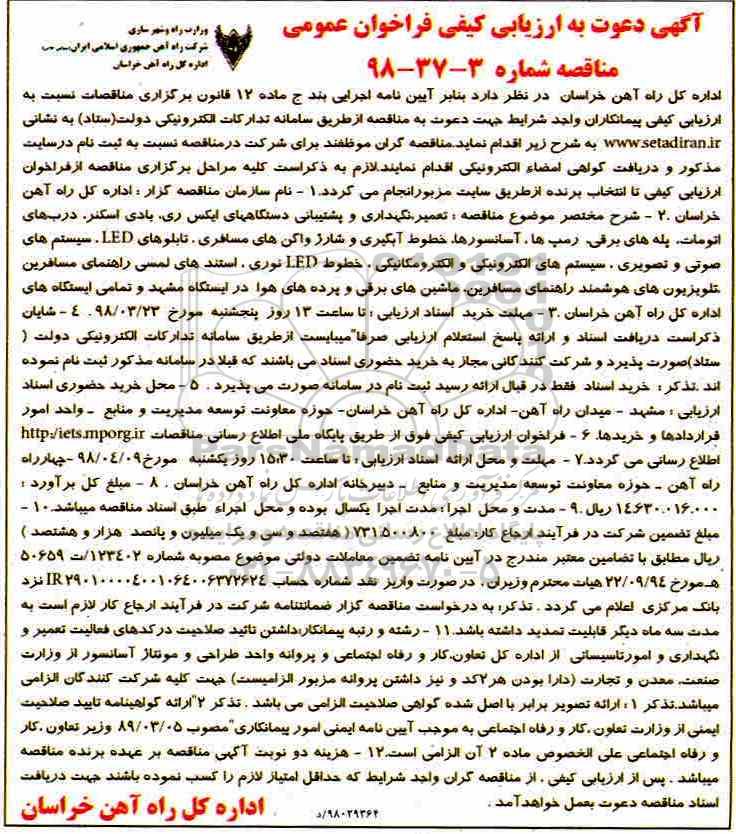 آگهی دعوت به ارزیابی کیفی فراخوان عمومی
مناقصه شماره ۳-۳۷-۹۸
وزارت راه و شهرسازی
شرکت راه آهن جمهوری اسلامی ایران(سهامی خاص)
اداره کل راه آهن خراسان
اداره کل راه آهن خراسان در نظر دارد بنابر آیین نامه اجرایی بند ج ماده ۱۲ قانون برگزاری مناقصات نسبت به
ارزیابی کیفی پیمانکاران واجد شرایط جهت دعوت به مناقصه ازطریق سامانه تدارکات الکترونیکی دولت(ستاد) به نشانی
www.setadiran.ir به شرح زیر اقدام نماید.مناقصه گران موظفند برای شرکت درمناقصه نسبت به ثبت نام درسایت
مذکور و دریافت گواهی امضاء الکترونیکی اقدام نمایند.لازم به ذکراست کلیه مراحل برگزاری مناقصه ازفراخوان
ارزیابی کیفی تا انتخاب برنده ازطریق سایت مزبورانجام می گردد.۱ - نام سازمان مناقصه گزار : اداره کل راه آهن
خراسان .۲ - شرح مختصر موضوع مناقصه : تعمیر،نگهداری و پشتیبانی دستگاههای ایکس ری، بادی اسکنر، درب‌های
اتومات، پله های برقی، رمپ ها ، آسانسورها، خطوط آبگیری و شارژ واگن های مسافری ، تابلوهای LED ، سیستم های
صوتی و تصویری ، سیستم های الکترونیکی و الکترومکانیکی ، خطوط LED نوری ، استند های لمسی راهنمای مسافرین
،تلویزیون های هوشمند راهنمای مسافرین، ماشین های برقی و پرده های هوا در ایستگاه مشهد و تمامی ایستگاه های
اداره کل راه آهن خراسان .۳ - مهلت خرید اسناد ارزیابی : تا ساعت ۱۳ روز پنجشنبه مورخ ۹۸/۰۳/۲۳ . ۴ - شایان
ذکراست دریافت اسناد و ارائه پاسخ استعلام ارزیابی صرفا"میبایست ازطریق سامانه تدارکات الکترونیکی دولت (
ستاد)صورت پذیرد و شرکت کنندگانی مجاز به خرید حضوری اسناد می باشند که قبلا در سامانه مذکور ثبت نام نموده
اند .تذکر : خرید اسناد فقط در قبال ارائه رسید ثبت نام در سامانه صورت می پذیرد . ۵ - محل خرید حضوری اسناد
ارزیابی : مشهد - میدان راه آهن- اداره کل راه آهن خراسان- حوزه معاونت توسعه مدیریت و منابع ـ واحد امور
قراردادها و خریدها. ۶ - فراخوان ارزیابی کیفی فوق از طریق پایگاه ملی اطلاع رسانی مناقصات http:/iets.mporg.ir
اطلاع رسانی می گردد.۷ - مهلت و محل ارائه اسناد ارزیابی : تا ساعت ۱۵:۳۰ روز یکشنبه مورخ۹۸/۰۴/۰۹ -چهارراه
راه آهن ـ حوزه معاونت توسعه مدیریت و منابع ـ دبیرخانه اداره کل راه آهن خراسان . ۸ - مبلغ کل برآورد :
۱۴،۶۳۰،۰۱۶،۰۰۰ ریال .۹ - مدت و محل اجرا: مدت اجرا یکسال بوده و محل اجراء طبق اسناد مناقصه میباشد.۱۰ -
مبلغ تضمین شرکت در فرآیند ارجاع کار: مبلغ ۷۳۱،۵۰۰،۸۰۰ ( هفتصد و سی و یک میلیون و پانصد هزار و هشتصد )
ریال مطابق با تضامین معتبر مندرج در آیین نامه تضمین معاملات دولتی موضوع مصوبه شماره ۱۲۳۴۰۲/ت ۵۰۶۵۹
هـ مورخ ۲۲/۰۹/۹۴ هیات محترم وزیران . در صورت واریز نقد شماره حساب IR۲۹۰۱۰۰۰۰۴۰۰۱۰۶۴۰۰۶۳۷۲۶۲۴ نزد
بانک مرکزی اعلام می گردد . تذکر: به درخواست مناقصه گزار ضمانتنامه شرکت در فرآیند ارجاع کار لازم است به
مدت سه ماه دیگر قابلیت تمدید داشته باشد.۱۱ - رشته و رتبه پیمانکار:داشتن تائید صلاحیت درکدهای فعالیت تعمیر و
نگهداری و امورتاسیساتی از اداره کل تعاون،کار و رفاه اجتماعی و پروانه واحد طراحی و مونتاژ آسانسور از وزارت
صنعت، معدن و تجارت (دارا بودن هر۲کد و نیز داشتن پروانه مزبور الزامیست) جهت کلیه شرکت کنندگان الزامی
میباشد.تذکر ۱ : ارائه تصویر برابر با اصل شده گواهی صلاحیت الزامی می باشد . تذکر ۲"ارائه گواهینامه تایید صلاحیت
ایمنی از وزارت تعاون ،کار و رفاه اجتماعی به موجب آیین نامه ایمنی امور پیمانکاری"مصوب ۸۹/۰۳/۰۵ وزیر تعاون ،کار
و رفاه اجتماعی علی الخصوص ماده ۲ آن الزامی است.۱۲ - هزینه دو نوبت آگهی مناقصه بر عهده برنده مناقصه
میباشد . پس از ارزیابی کیفی ، از مناقصه گران واجد شرایط که حداقل امتیاز لازم را کسب نموده باشند جهت دریافت
اسناد مناقصه دعوت بعمل خواهدآمد .
۹۸۰۲۹۳۶۴/د
اداره کل راه آهن خراسان
ParaNamadData
۰۲۱-۸۸۳۴۹۶۷۰-۵